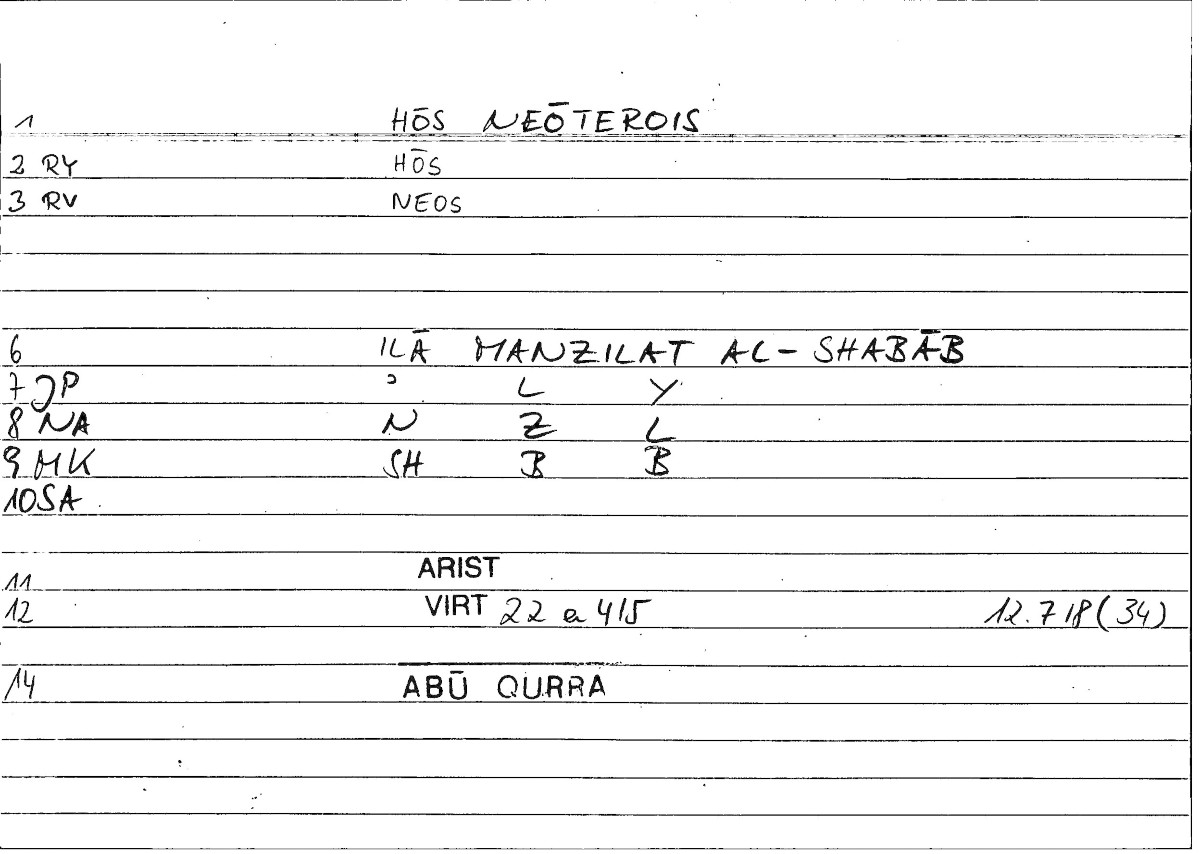 1 HŌS NEŌTEROIS
2 RY HŌS
3 RV NEOS
6 ILĀ MANZILAT AL-SHABĀB
7 JP ʾ L Y
8 NA N Z L
9 MK SH B B
10 SA
11 ARIST
12 VIRT 22 a 4/5 12.7 18 (34)
14 ABŪ QURRA